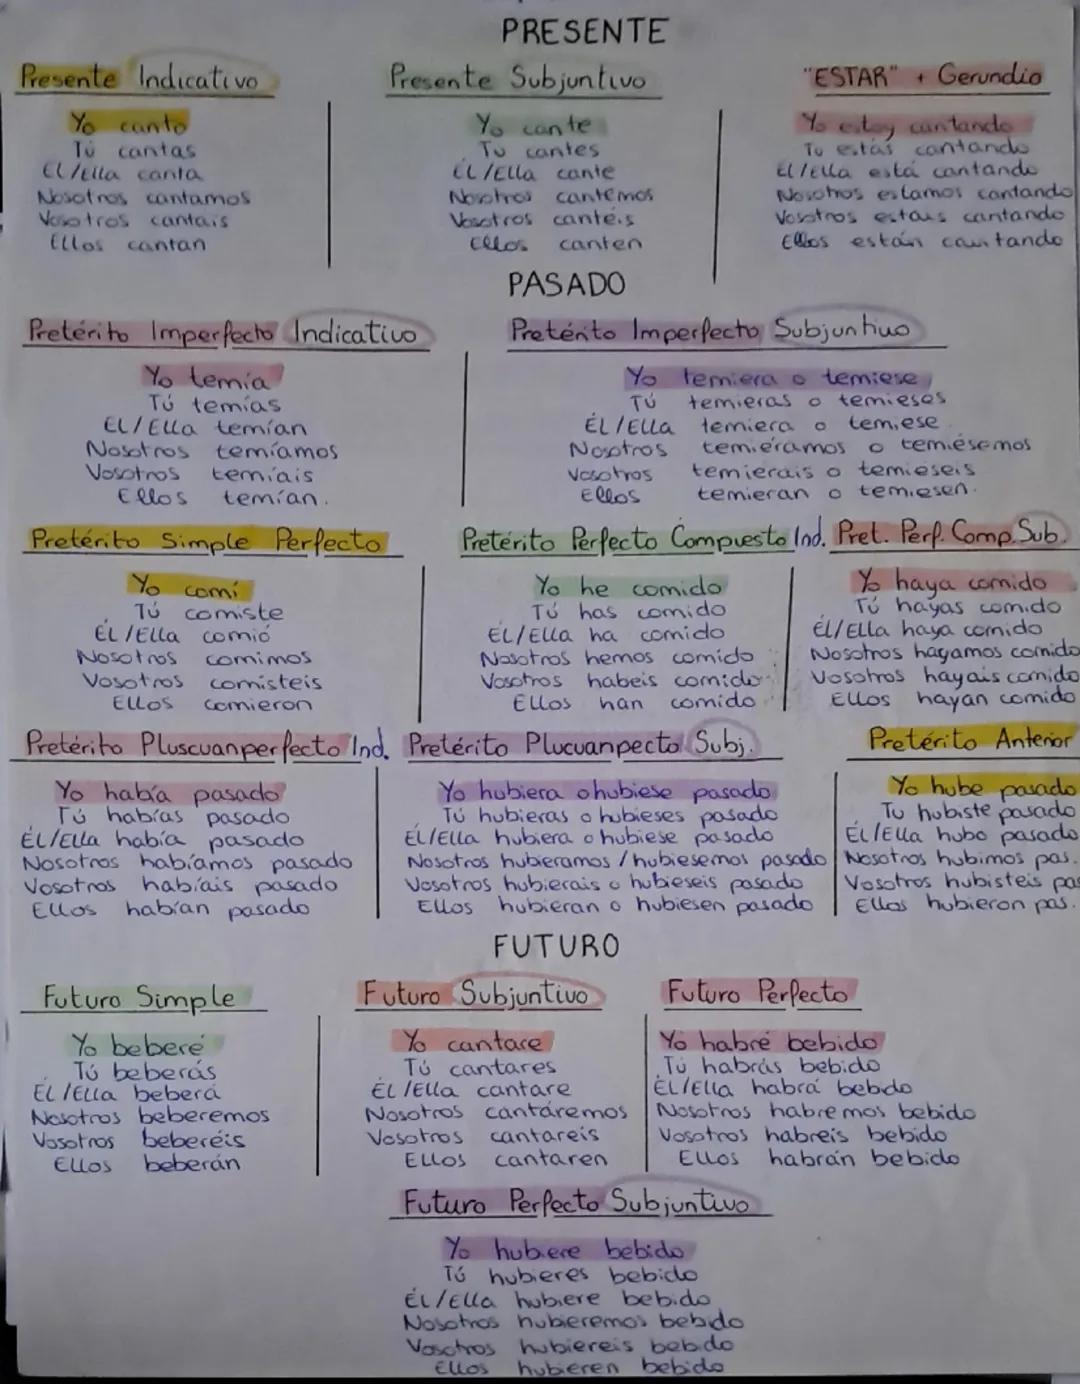 PRESENTE
Presente Indicativo
Yo canto
Tú cantas
El/Ella canta
Nosotros cantamos
Vosotros cantais
Ellos cantan
Presente Subjuntivo
Yo cante
Tu cantes
ÉL/Ella cante
Nosotros cantemos
Vosotros cantéis
Ellos canten
"ESTAR" + Gerundio
Yo estoy cantando
Tu estás cantando
El/Ella está cantando
Nosotros estamos cantando
Vosotros estais cantando
Ellos están cantando
PASADO
Pretérito Imperfecto Indicativo
Yo temía
Tú temías
EL/Ella temían
Nosotros temíamos
Vosotros temíais
Ellos temían.
Pretérito Imperfecto Subjuntivo
Yo temiera o temiese
Tú temieras o temieses
ÉL/Ella temiera o temiese
Nosotros temiéramos o temiésemos
Vosotros temierais o temieseis
Ellos temieran o temiesen.
Pretérito Simple Perfecto
Yo comí
Tú comiste
ÉL/Ella comió
Nosotros comimos
Vosotros comisteis
Ellos comieron
Pretérito Perfecto Compuesto Ind.
Yo he comido
Tú has comido
EL/Ella ha comido
Nosotros hemos comido
Vosotros habeis comido
Ellos han comido
Pret. Perf. Comp. Sub.
Yo haya comido
Tú hayas comido
Él/Ella haya comido
Nosotros hayamos comido
Vosotros hayais comido
Ellos hayan comido
Pretérito Pluscuanperfecto Ind.
Yo había pasado
Tú habías pasado
ÉL/Ella había pasado
Nosotros habíamos pasado
Vosotros habíais pasado
Ellos habían pasado
Pretérito Plucuanpecto Subj.
Yo hubiera o hubiese pasado
Tú hubieras o hubieses pasado
ÉL/Ella hubiera o hubiese pasado
Nosotros hubieramos / hubiesemos pasado
Vosotros hubierais o hubieseis pasado
Ellos hubieran o hubiesen pasado
Pretérito Anterior
Yo hube pasado
Tu hubiste pasado
ÉL/Ella hubo pasado
Nosotros hubimos pas.
Vosotros hubisteis pas
Ellos hubieron pas.
FUTURO
Futuro Simple
Yo beberé
Tú beberás
ÉL/Ella beberá
Nosotros beberemos
Vosotros beberéis
Ellos beberán
Futuro Subjuntivo
Yo cantare
Tú cantares
ÉL/Ella cantare
Nosotros cantáremos
Vosotros cantareis
Ellos cantaren
Futuro Perfecto
Yo habré bebido
Tú habrás bebido
ÉL/Ella habrá bebido
Nosotros habremos bebido
Vosotros habreis bebido
Ellos habrán bebido
Futuro Perfecto Subjuntivo
Yo hubiere bebido
Tú hubieres bebido
ÉL/Ella hubiere bebido
Nosotros hubieremos bebido
Vosotros hubiereis bebido
Ellos hubieren bebido